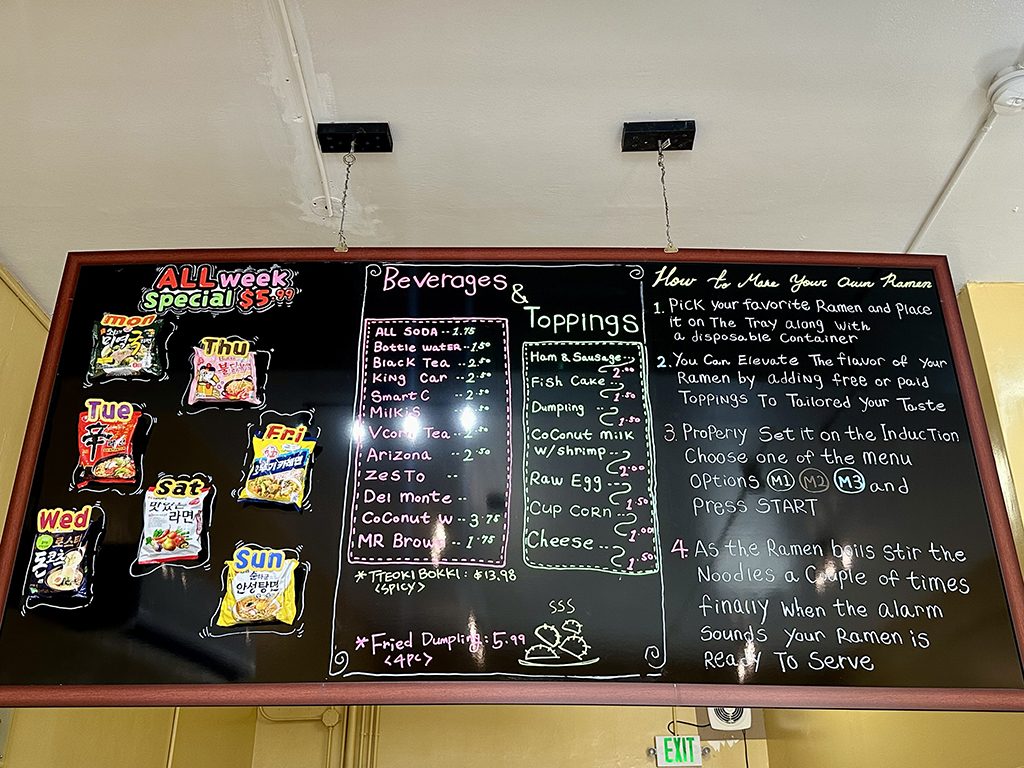 ALL week
special $5.99
mon
Thu
Tue
辛
Fri
Sat
맛있는
라면
Wed
로스팅
Sun
안성탕면
Beverages
&
Toppings
ALL SODA -- 1.75
Bottle WATER -- 1.50
Black Tea -- 2.50
King Car -- 2.50
Smart C -- 2.50
Milkis
Vcorn Tea -- 2.50
Arizona -- 2.50
ZeSTo --
Del Monte --
CoConut W -- 3.75
MR Brown -- 1.75
Ham & Sausage --
2.00
Fish Cake --
1.50
Dumpling --
1.50
CoConut milk
w/shrimp --
2.00
Raw Egg --
1.50
CUP CORn --
1.00
Cheese --
1.50
*TTEOKIBOKKI: $13.98
<SPICY>
*Fried Dumpling: 5.99
<4PC>
SSS
How to Make Your own Ramen
1. PiCK your favorite Ramen and Place
it on The Tray along with
a disposable Container
2. You Can Elevate The flavor of Your
Ramen by adding free or paid
TOPPINGS To Tailored Your Taste
3. Properly Set it on the Induction
Choose one of the menu
Options M1 M2 M3 and
Press START
4. As the Ramen boils stir the
Noodles a Couple of times
finally when the alarm
Sounds Your Ramen is
Ready To Serve
EXIT